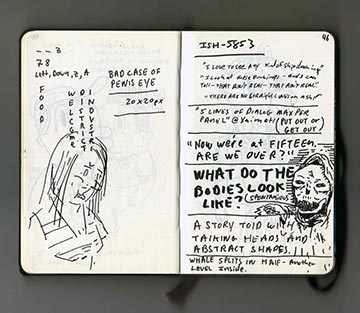 -- -- Z
78
Left, Down, Z, A
FOOD
WELCOME
DISTRICT
INDUSTRI
BAD CASE OF
PENIS EYE
20x20px
46
ISH-5853
"I LOVE TO SEE ANY KIND OF
THAT AIN'T REAL- THAT AIN'T REAL."
"5 LINES OF DIALOG MAX PER
PANEL"
(PUT OUT OR
GET OUT)
"NOW WE'RE AT FIFTEEN.
ARE WE OVER?"
WHAT DO THE
BODIES LOOK
LIKE?
A STORY TOLD WITH
TALKING HEADS AND
ABSTRACT SHAPES.
WHALE SPLITS IN HALF - Another
LEVEL Inside.